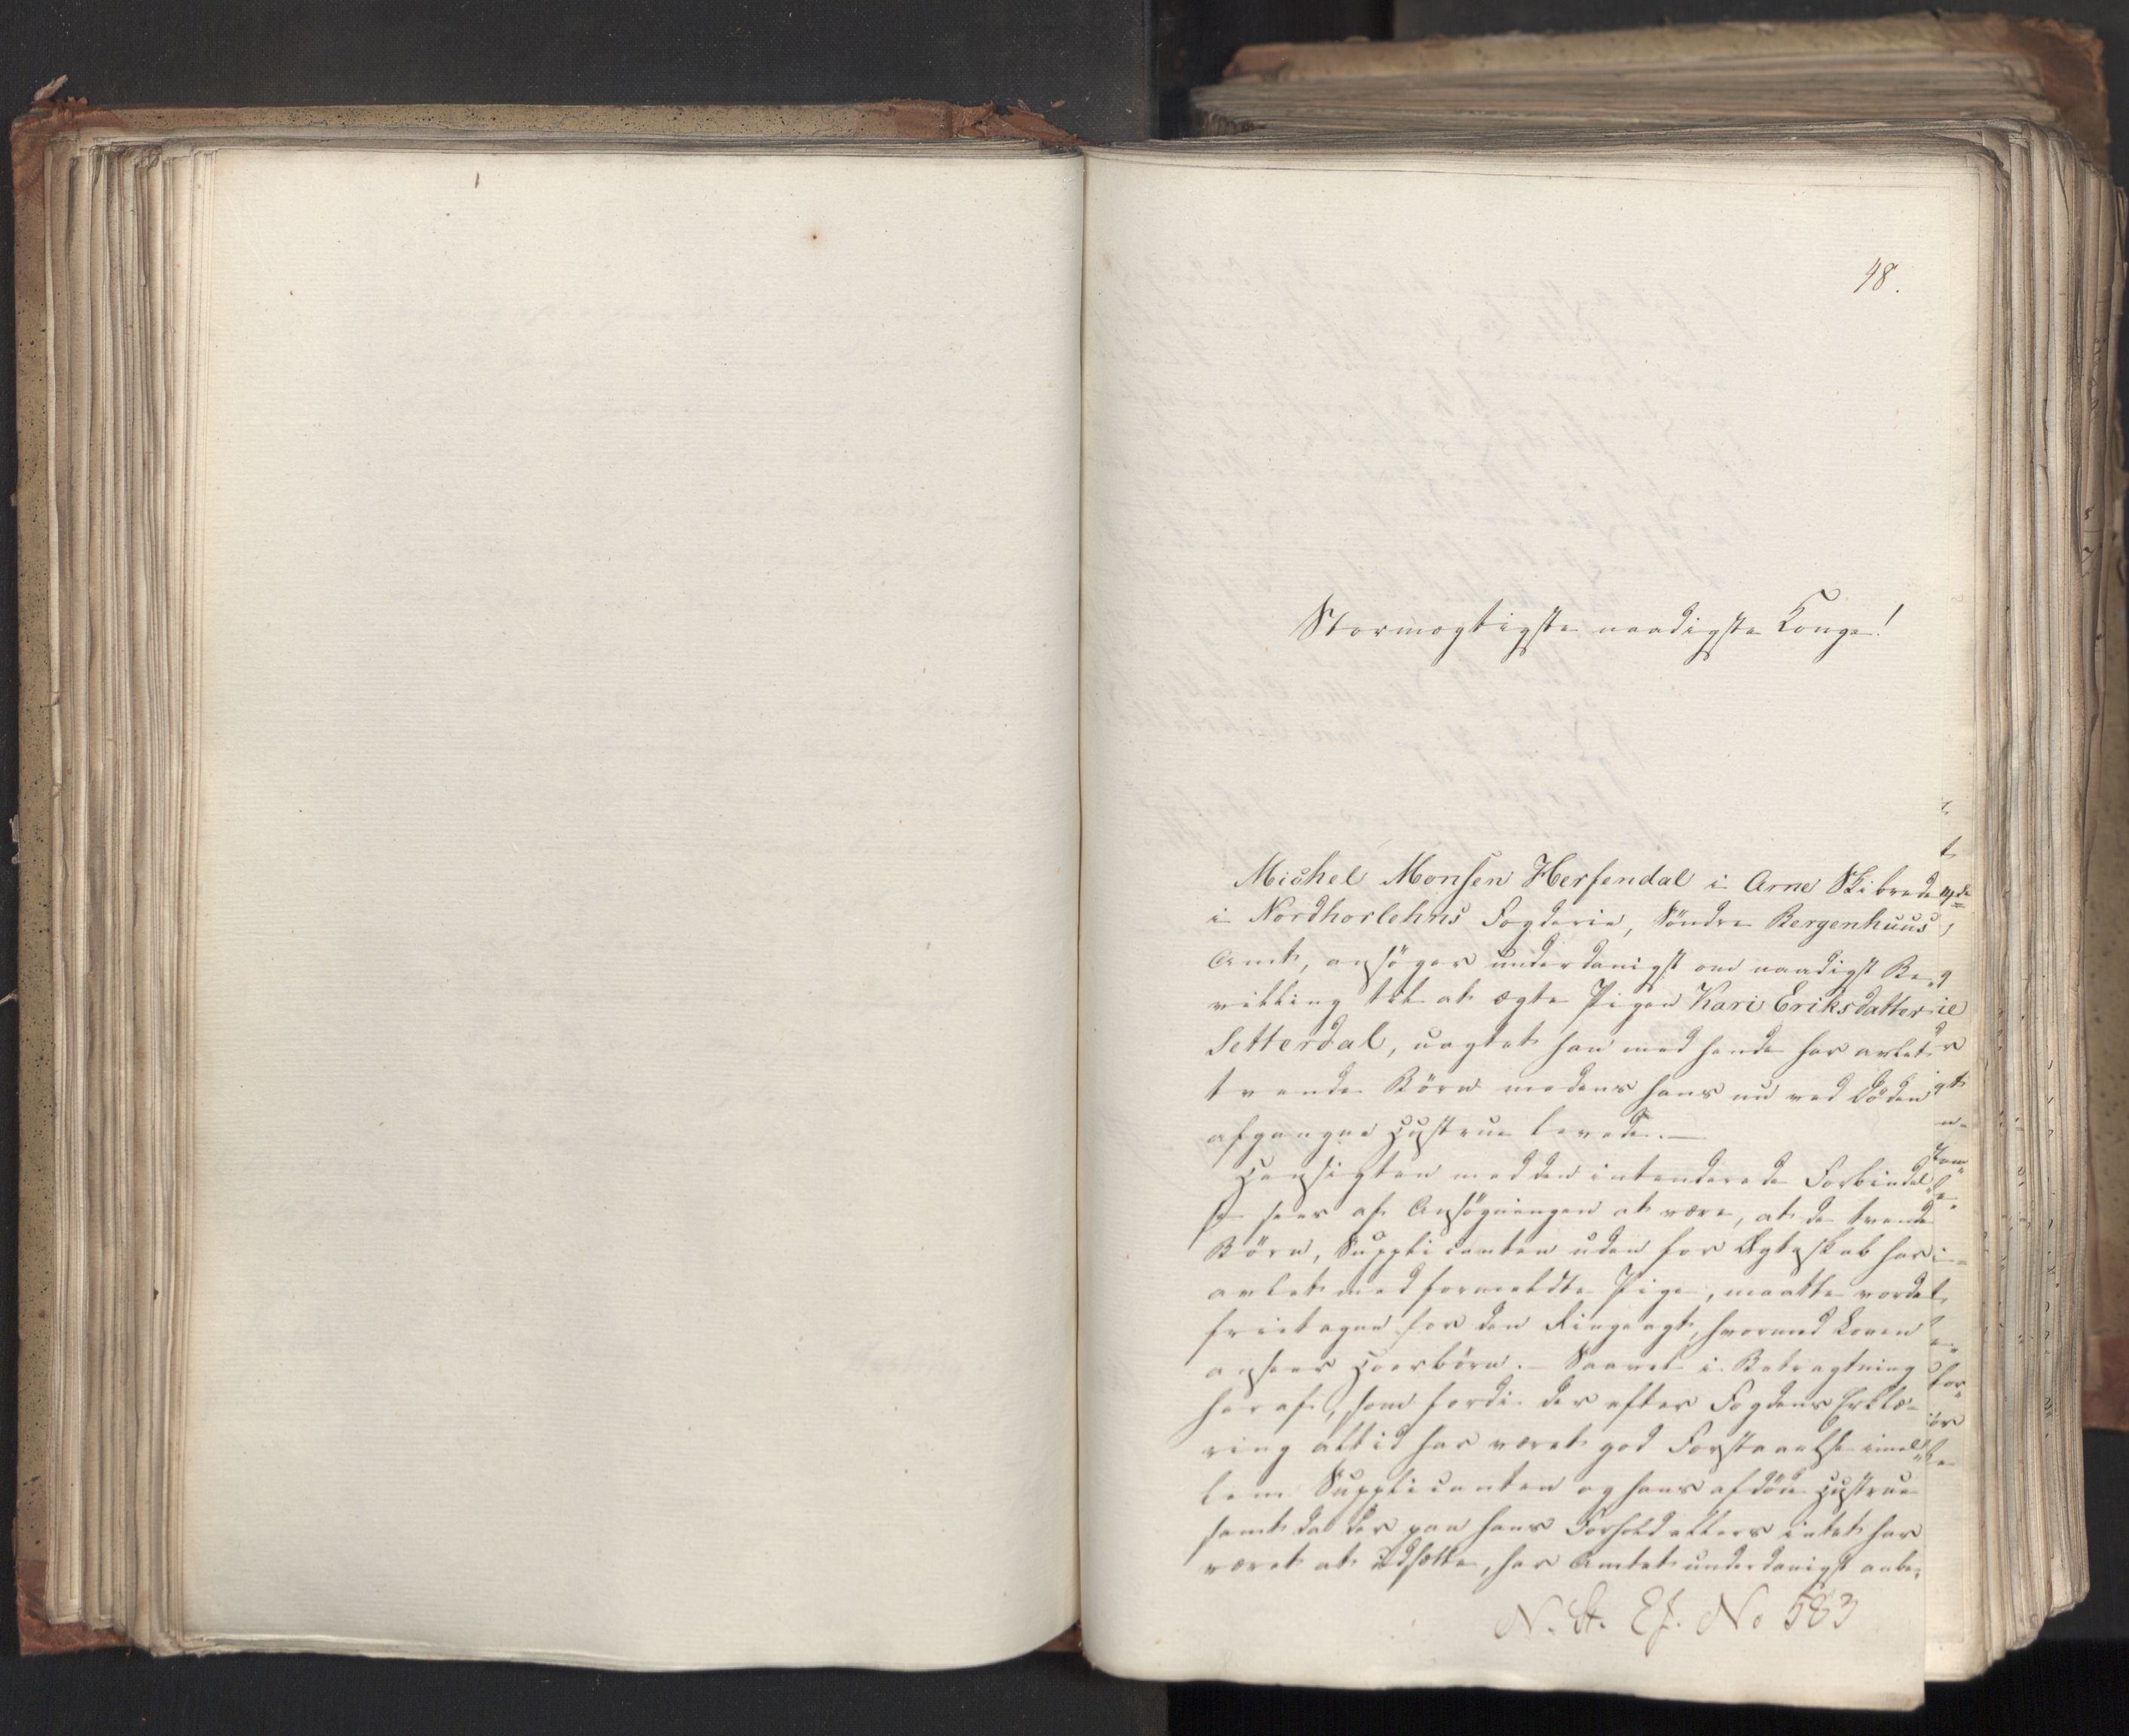 48.
Stormægtigste naadigste Konge!
Michel Monsen Herfendal i Arne Skibrede
i Nordhorlehns Fogderie, Søndre Bergenhuus
Amt, ansøger underdanigst om naadigst Be-
villing til at ægte Pigen Kari Eriksdatter
Setterdal, uagtet han med hende har avlet
tvende Börn medens hans nu ved Döden
afgangne Hustrue levede.—
Hensigten med den intenderede Forbindel-
se sees af Ansøgningen at være, at de tvende
Börn, Supplicanten uden for Ægteskab har
avlet med formeldte Pige, maatte vorde
fritagne for den Ringeagt, hvormed Loven
ansees Hoerbörn.— Saavel i Betragtning
heraf, som fordi der efter Fogdens Erklæ-
ring altid har været god Forstaaelse imel-
lem Supplicanten og hans afdöde Hustrue
samt da der paa hans Forhold ellers intet har
været at udsætte, har Amtet underdanigst anbe-
N. St. Ef. No 583